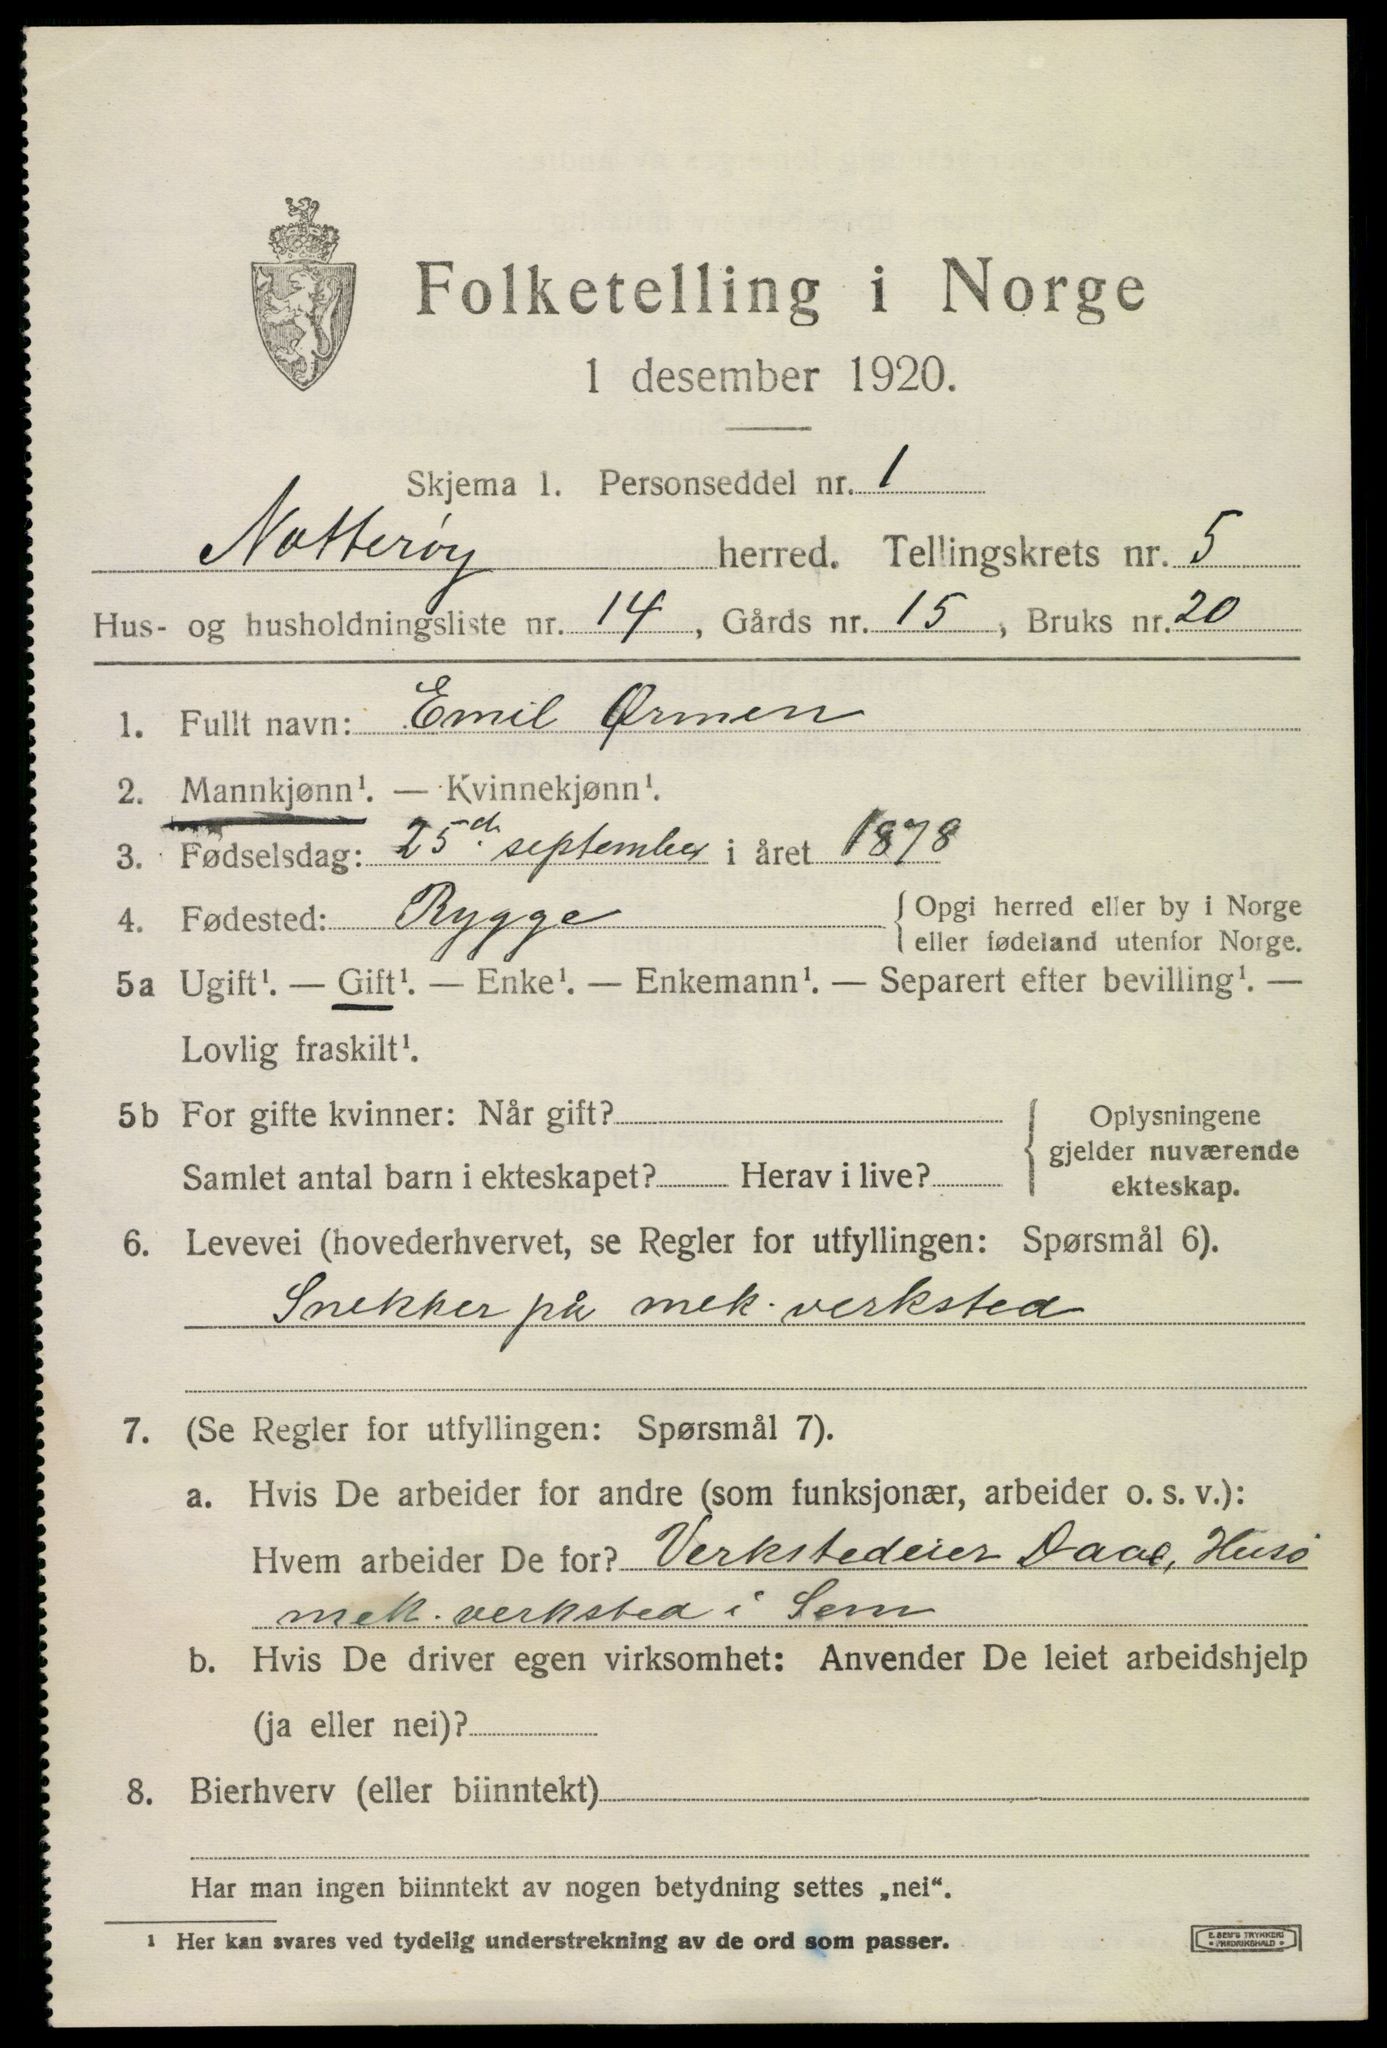 Folketelling i Norge
1 desember 1920.
Skjema 1. Personseddel nr. 1
Nøtterøy herred. Tellingskrets nr. 5
Hus- og husholdningsliste nr. 14, Gårds nr. 15, Bruks nr. 20
1. Fullt navn: Emil Ørmen
2. Mannkjønn¹. — Kvinnekjønn¹.
3. Fødselsdag: 25de september i året 1878
4. Fødested: Rygge { Opgi herred eller by i Norge
eller fødeland utenfor Norge.
5a Ugift¹. — Gift¹. — Enke¹. — Enkemann¹. — Separert efter bevilling¹. —
Lovlig fraskilt¹.
5b For gifte kvinner: Når gift? { Oplysningene
gjelder nuværende
Samlet antal barn i ekteskapet? Herav i live?
ekteskap.
6. Levevei (hovederhvervet, se Regler for utfyllingen: Spørsmål 6).
Snekker på mek. verksted
7. (Se Regler for utfyllingen: Spørsmål 7).
a. Hvis De arbeider for andre (som funksjonær, arbeider o. s. v.):
Hvem arbeider De for? Verkstedeier Daae, Husø
mek. verksted i Sem
b. Hvis De driver egen virksomhet: Anvender De leiet arbeidshjelp
(ja eller nei)?
8. Bierhverv (eller biinntekt)
Har man ingen biinntekt av nogen betydning settes „nei“.
¹ Her kan svares ved tydelig understrekning av de ord som passer.
E. SEM'S TRYKKERI
• FREDRIKSHALD •